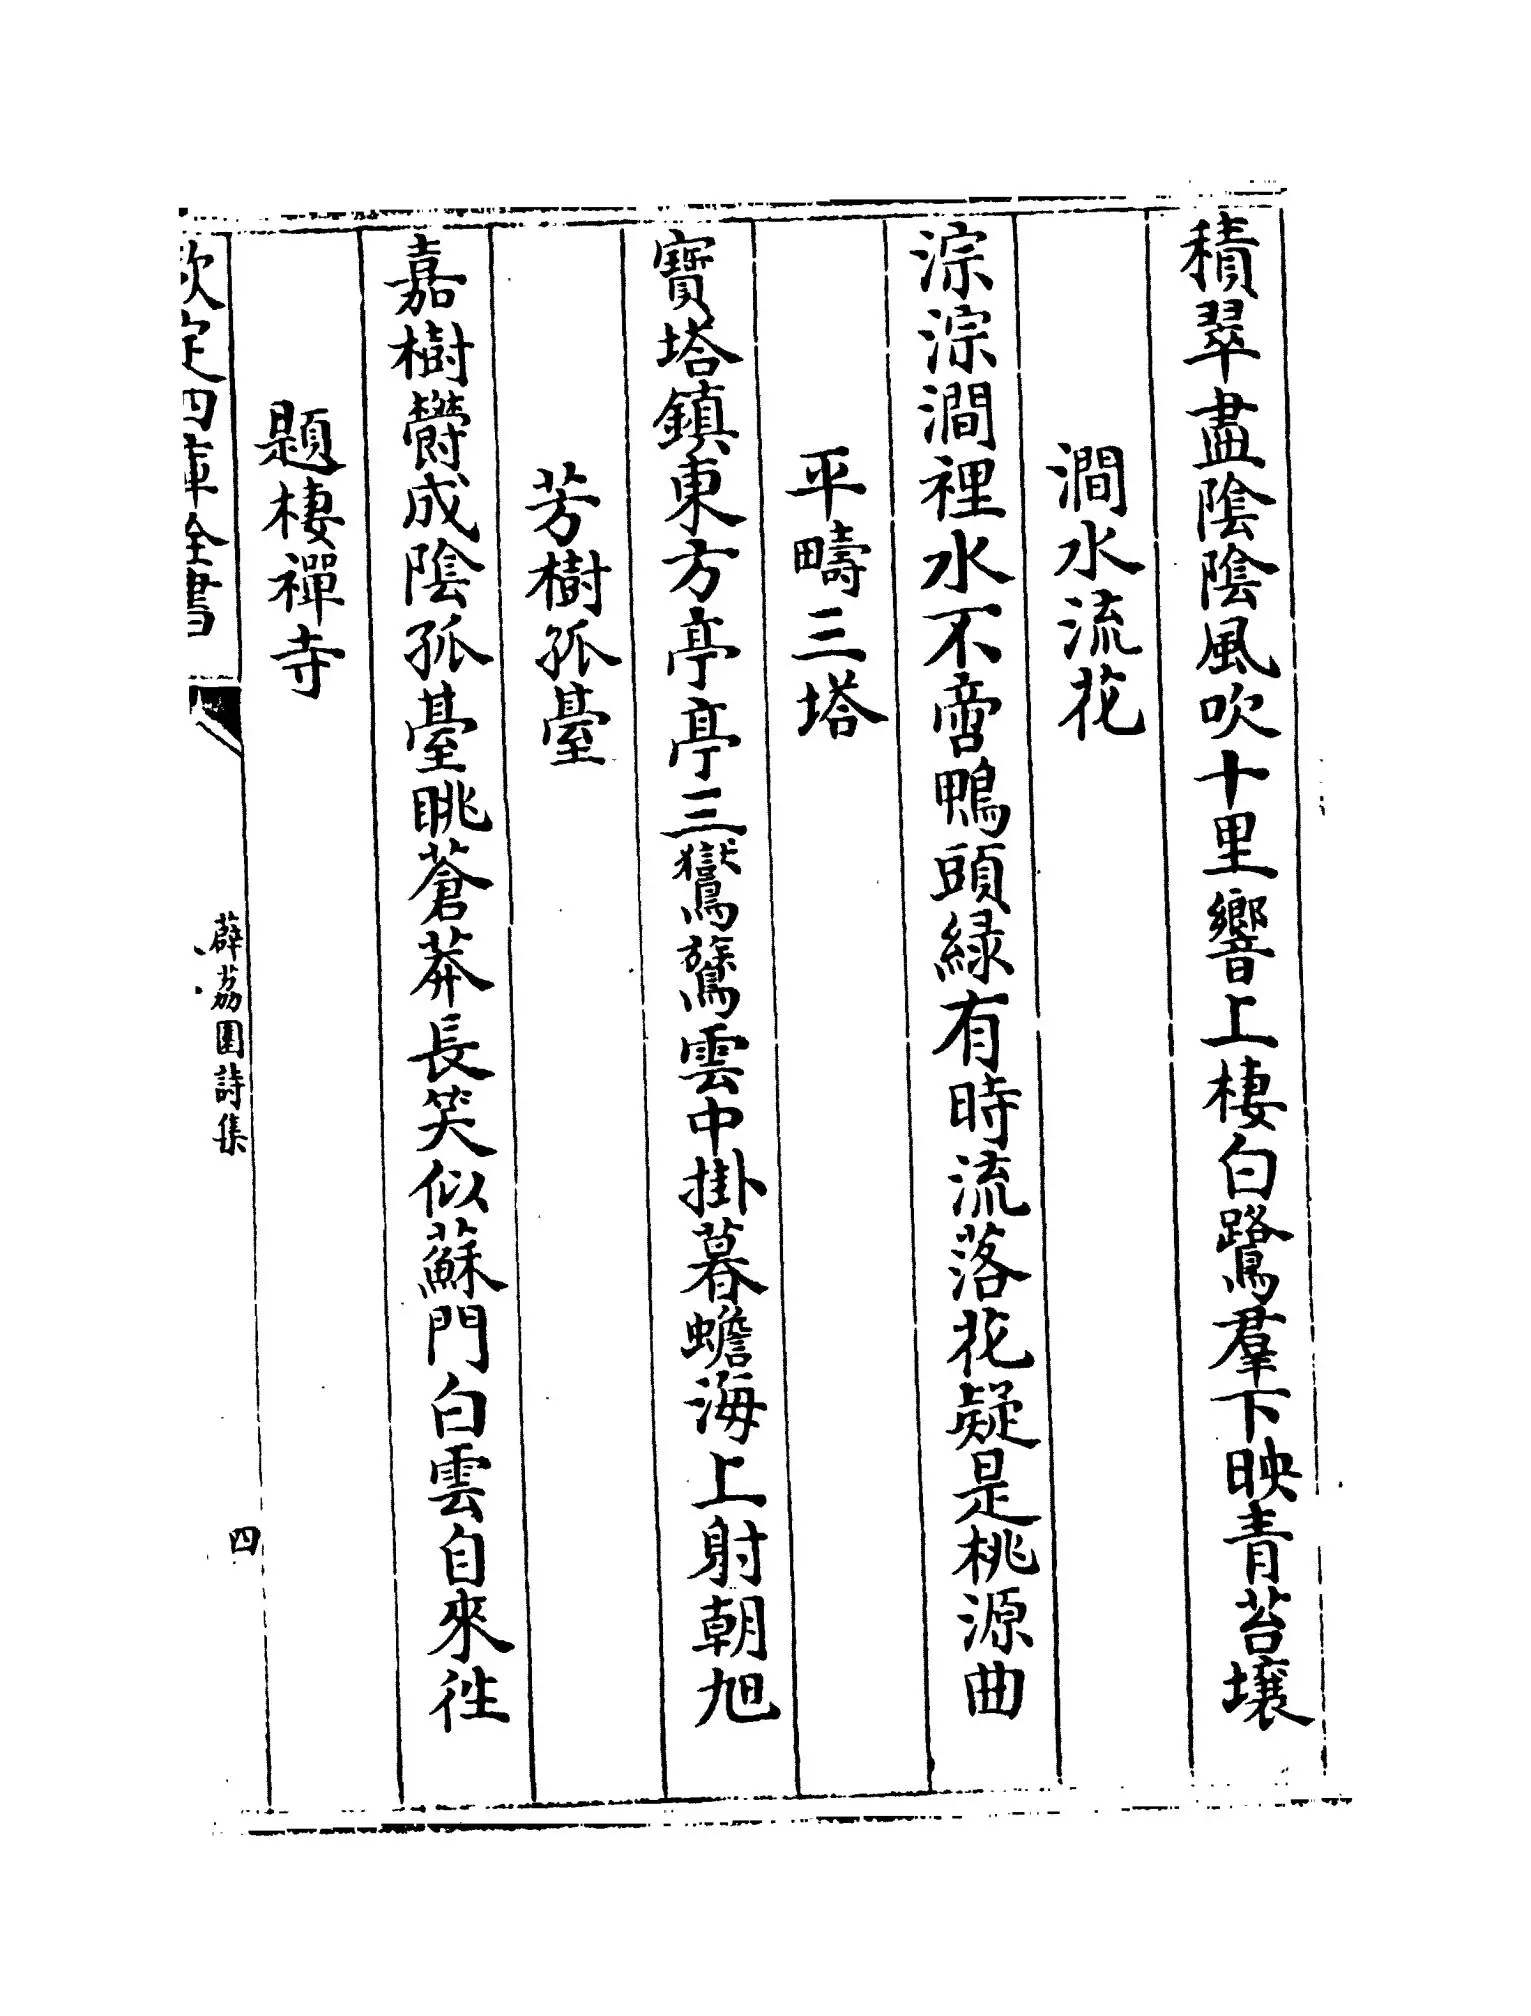 積翠盡陰陰風吹十里響上棲白鷺羣下映青苔壤
澗水流花
淙淙澗裡水不啻鴨頭綠有時流落花疑是桃源曲
平疇三塔
寶塔鎮東方亭亭三鸑鷟雲中掛暮蟾海上射朝旭
芳樹孤臺
嘉樹欝成陰孤臺眺蒼莽長笑似蘇門白雲自來徃
題棲禪寺
欽定四庫全書
薜荔園詩集
四